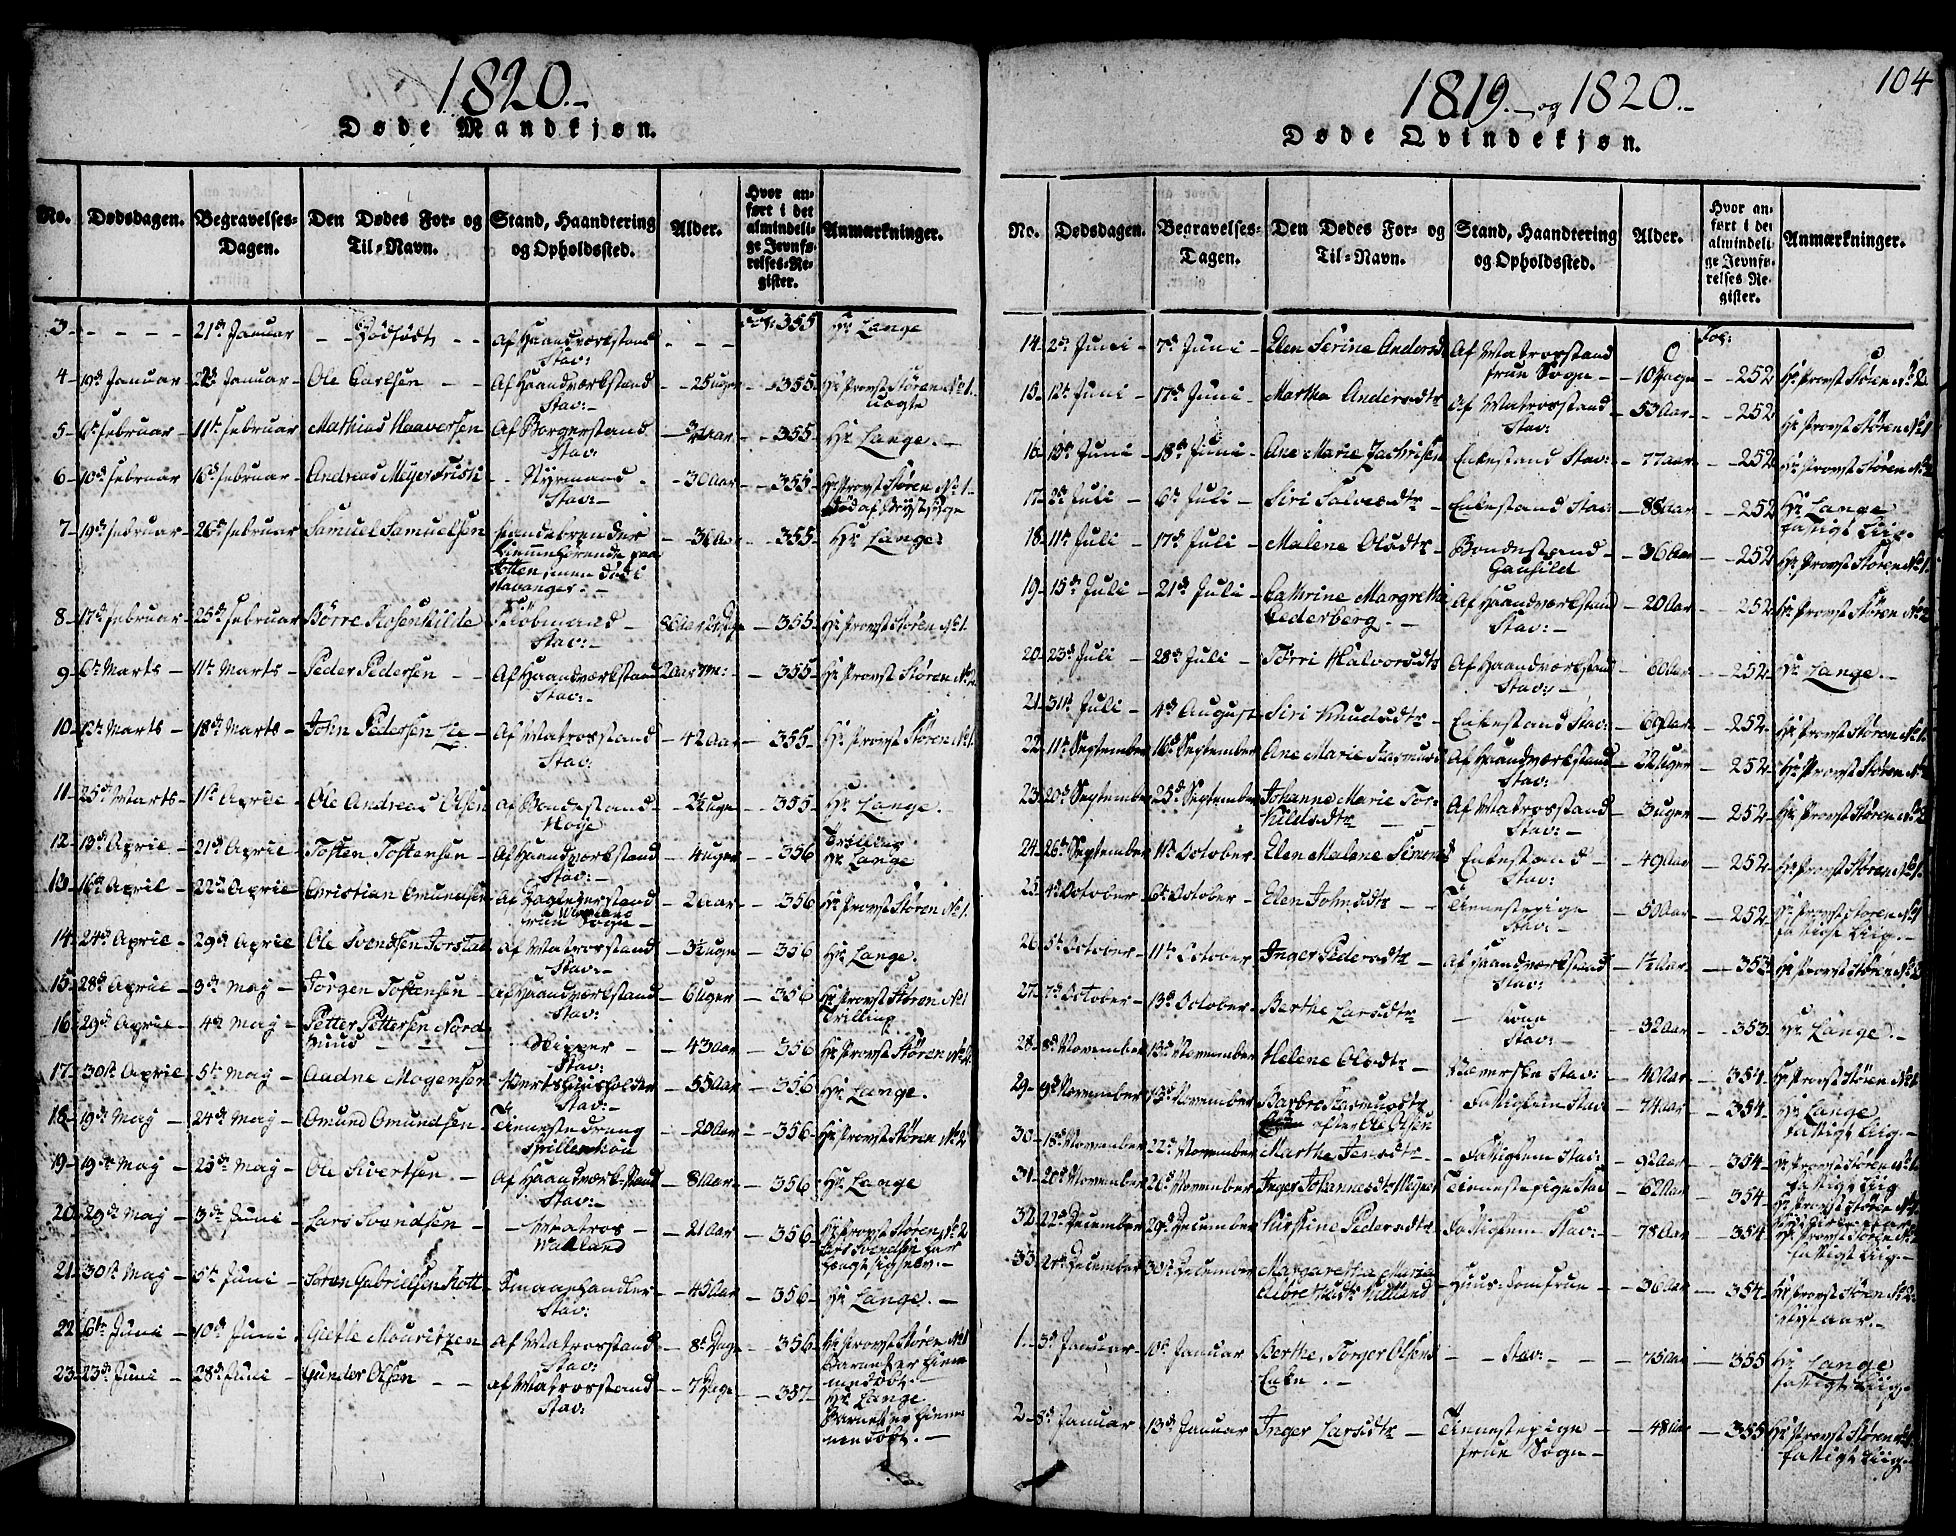 1820.-
Døde Mandkjøn.
No. Dødsdagen. Begravelses-Dagen. Den Dødes For- og Til-Navn. Stand, Haandtering og Opholdssted. Alder. Hvor anført i det almindelige Jevnførelses-Register. Anmærkninger.
3 - - - - 21de Januar - Dødfødt - Af Haandværkstand - - - 355 Hr Lange
Stav:
4 - 19de Januar - Januar - Ole Carlsen - - Af Haandværkstand - 25 uger - 355 - Hr Provst Støren No 1.
Stav: -
5 - 6te Februar - 11te Februar Mathias Haaversen Af Borgerstand - Aar - - 355 - Hr Lange. -
Stav:
6 - 10de Februar 16de Februar - Andreas Meyer - Styrmand - 30 Aar - 355 - Hr Provst Støren No 1 -
Stav: - Død af Brystsyge
7 - 19de Februar - 26de Februar Samuel Samuelsen - 355 - Hr Lange
men død i
Stavanger. -
8 - 17de Februar - 25de Februar Børre Rosenkilde Kiøbmand - 355 - Hr Provst Støren No 1.
Stav: -
9 - 6te Marts - 11te Marts - Peder Pedersen - - Af Haandværkstand - 355 - Hr Provst Støren
Stav: -
10 - Marts - 18de Marts - John Pedersen Lie - Af Matrosstand - 42 Aar - 355 - Hr Provst Støren No 1.
Stav:
11 - 25de Marts - 1te April - Ole Andreas Olsen Af Bondestand - uge - 355 - Hr Lange.
Hoye
12 - 13de April - 21de April - Tosten Tostensen - Af Haandværkstand - 4 uger - 356 Trilling
Stav: - Hr Lange
13 - 16de April - 22de April - Christian Omundsen Af - 2 Aar - 356 Hr Provst Støren No 1.
Frue Sogn -
14 - 24de April - 29de April - Ole Svendsen Af Matrosstand - uge - 356 Hr Lange.
Stav: -
15 - 28de April - 3de May - Jørgen Tostensen - Af Haandværkstand - 6 uger - 356 Hr Provst Støren No 1
Stav: Trilling
16 - 29de April - 4de May - Petter Pettersen Nord-
- Skipper - - 43 Aar - 356 Hr Provst Støren
Stav:
17 - 30te April - 5te May - Aadne Mogensen Vertshuusholder - 55 Aar - 356 - Hr Lange.
Stav: -
18 - 19de May - 24de May - Omund Omundsen - Tienestedreng - 20 Aar - 356 - Hr Provst Støren No 2
19 - 19de May - 25de May - Ole Sivertsen - Af Haandværkstand - 81 Aar - 356 - Hr Lange
Stav: -
20 - 29de May - 3de Juni - Lars Svendsen - - Matros - - 21 Aar - 356 - Hr Provst Støren No 2
Lars Svendsen har
21 - 30te May - 5te Juni - Søren Gabrielsen Smaahandler - 45 Aar - 356 - Hr Lange. -
Stav:
22 - 6te Juni - 10de Juni - Giertle Mouritzen Af Matrosstand - 8te Dage - 356 - Hr Provst Støren No 1
Stav: Barnet er hiem-
medøbt. -
23 - 23de Juni - 28de Juni - Gunder Olsen - - Af Matrosstand - 7 Dage - 357 - Hr Lange.
Stav: Barnet er hiem-
medøbt. -
104
1819. - og 1820. -
Døde Qvindekjøn.
No. Dødsdagen. Begravelses-Tagen. Den Dødes For- og Til-Navn. Stand, Haandtering og Opholdssted. Alder. Hvor anført i det almindelige Jevnførelses Register. Anmærkninger.
Fol:
14 - 2de Juni - 7de Juni - Elen Serine Andersdtr Af Matrosstand
Frue Sogn - - 10 Dage - 252 Hr Provst Støren No 2
15 - 12te Juni - 17de Juni - Martha Andersdtr Af Matrosstand - 53 Aar - 252 Hr Provst Støren No 1
Stav:
16 - Juni - 18de Juni - Ane Marie Enkestand Stav: - 77 Aar - 252 Hr Provst Støren
17 - 2de Juli - 6te Juli - Siri - Enkestand Stav: - 88 Aar - 252 Hr Lange
fattigt Liig. -
18 - 11te Juli - 17de Juli - Malene Olsdtr - Bondestand - 36 Aar - 252 - Hr Provst Støren No 1.
Gausild
19 - 15de Juli - 21de Juli - Cathrine Margrethe Af Haandværkstand - 20 Aar - 252 Hr Provst Støren No 2
Cederberg. - Stav: -
20 - 23de Juli - 28de Juli - Tørri Halvorsdtr Af Haandværkstand - Aar - 252 - Hr Lange. -
Stav: -
21 - 31te Juli - 4de August - Siri Knudsdtr - Enkestand Stav: - 69 Aar - 252 - Hr Provst Støren No 1.
22 - 11te September 16de September Ane Marie Rasmusd Af Haandværkstand - uger - 252 - Hr Provst Støren
Stav: -
23 - 20de September 25de September Johanne Marie Tor- Af Matrosstand - 3 uger - 252 - Hr Provst Støren No 2
kildsdtr - - Stav: -
24 - 26de September 1te October - Elen Malene Simons Enkestand - - 49 Aar - 252 - Hr Provst Støren No 1.
Stav:
25 - 1te October - 6te October - Elen Johnsdtr - - Tienestepige - 50 Aar - 252 - Hr Provst Støren No 1
Stav: - fattigt Liig. -
26 - 5te October - 11te October - Inger Pedersdtr - Af Haandværkstand - 1½ Aar - 353 Hr Provst Støren
Stav:
27 - 7de October - 13de October - Berthe Larsdtr - Kone - 32 Aar - 353 - Hr Lange. -
Stav: -
28 - 8de November 13de November Helene Olsdtr - Stav: - 40 Aar - 354 - Hr Provst Støren No 1
29 - 9de November 13de November Barbre Rasmusdtr - Fattiglem Stav - 74 Aar - 354 - Hr Lange
efter Ole Olsen fattigt Liig. -
30 - 18de November 22de November Marthe Jensdtr - - Fattiglem Stav: - 92 Aar - 354 - Hr Provst Støren No 1
fattigt Liig
31 - 20de November 26de November Inger Johannesdtr Meyer Tienestepige Stav - 62 Aar - 354 - Hr Provst Støren
32 - 22de December 29de December Kirstine Pedersdtr Fattiglem Stav: - 78 Aar - 354 Hr Provst Støren
fattigt Liig. -
33 - December 30te December Margarethe Maria Huus-Jomfrue - 36 Aar - 354 - Hr Provst Støren No 2
Kielland
1. - 3de Januar - 10de Januar Berthe, Torger Olsens - Stav: - - 75 Aar - 355 Hr Lange
Enke. - fattigt Liig. -
2 - 8de Januar - 13de Januar Inger Larsdtr - Tienestepige - 48 Aar - 355 Hr Provst Støren
Frue Sogn - fattigt Liig. -